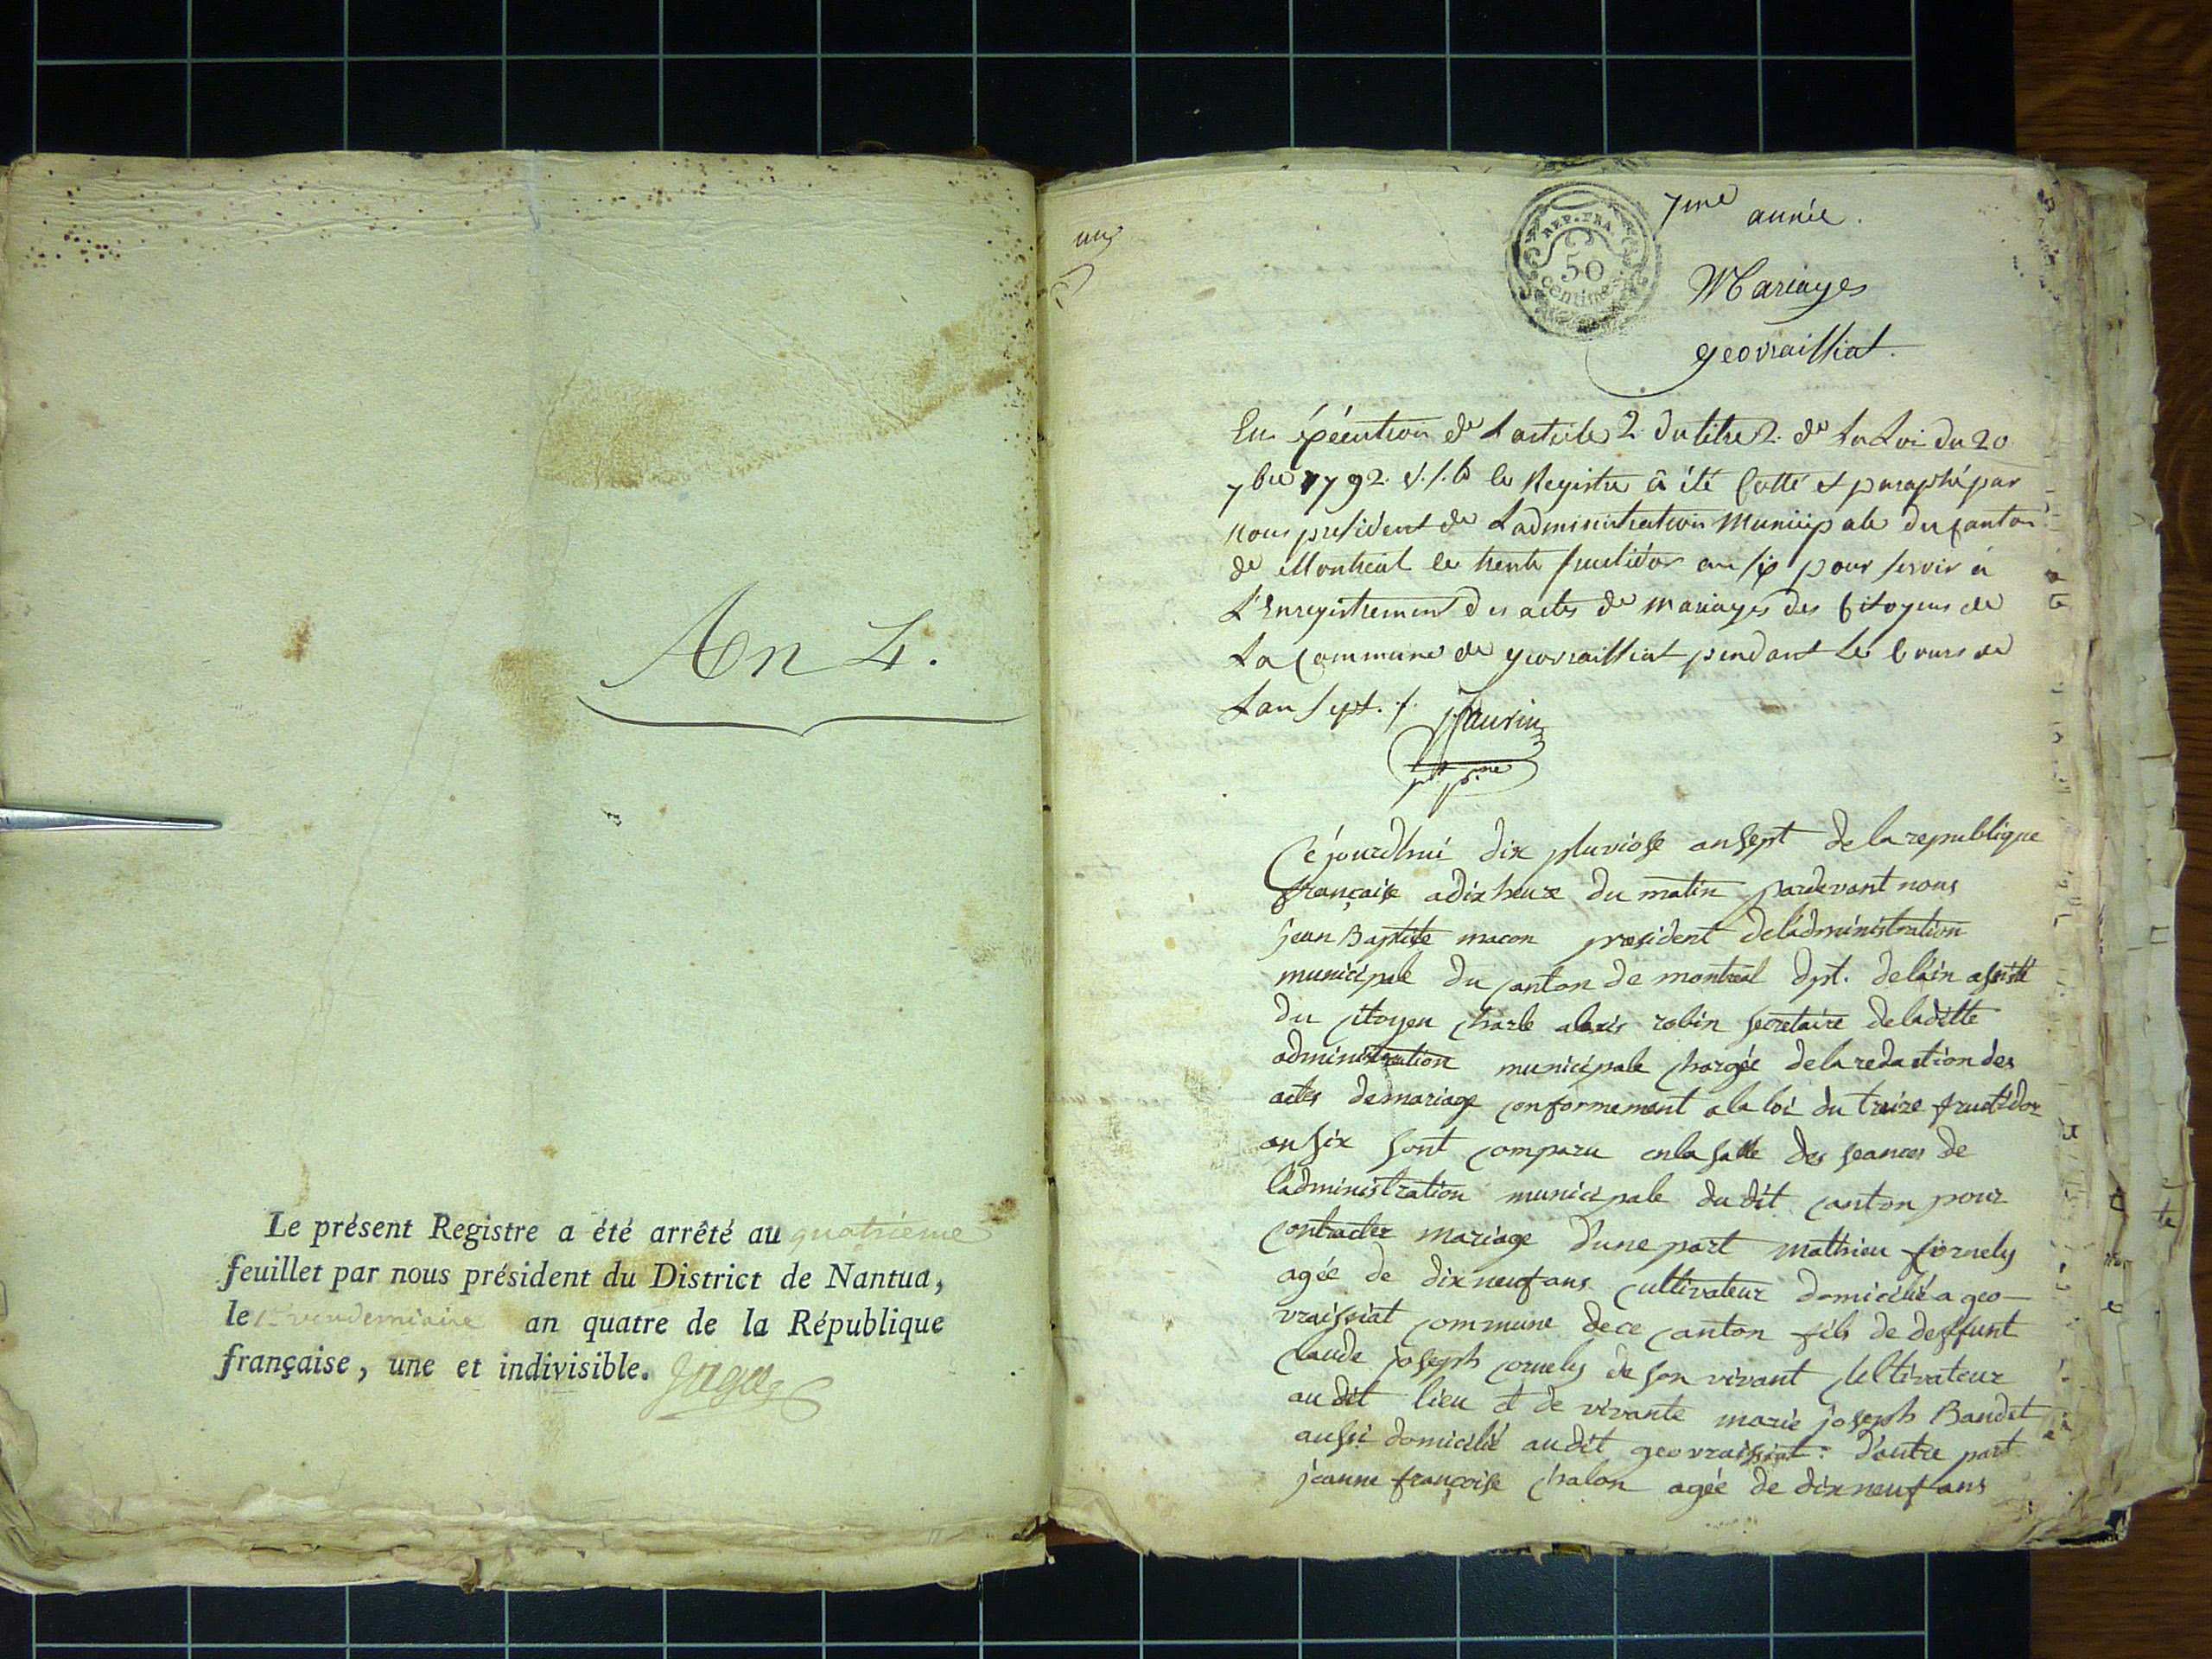 An 4.
Le présent Registre a été arrêté au quatriéme
feuillet par nous président du District de Nantua,
le 1er vendemiaire an quatre de la République
française, une et indivisible.
un
REP. FRA.
50
centimes
7me année.
Mariages
geovraissiat.
En éxécution de L'article 2. du titre 2. de La Loi du 20
7bre 1792. v.s. le Registre à été Cotté et paraphé par
nous président de L'administration Municipale du Canton
de Montreal le trente fructidor an six pour servir à
L'Enregistrement des actes de Mariages des Citoyens de
La Commune de geovraissiat pendant Le Cours de
L'an sept.
Cejourdhui dix pluviose an sept de la republique
française a dix heure du matin pardevant nous
jean Baptiste macon president deladministration
municipale du canton de montreal dpt. delain assisté
du citoyen charle alexis robin secretaire deladitte
administration municipale chargée dela redaction des
actes de mariage conformement a la loi du treize fructidor
an six sont comparu en la salle des seances de
ladministration municipale du dit canton pour
contracter mariage dune part mathieu cornely
agée de dix neuf ans cultivateur domicilié a geo-
vraissiat commune de ce canton fils de deffunt
claude joseph cornely de son vivant cultivateur
au dit lieu et de vivante marie joseph Baudet
aussi domicilié audit geovraissiat: d'autre part
jeanne françoise chalon agée de dix neuf ans